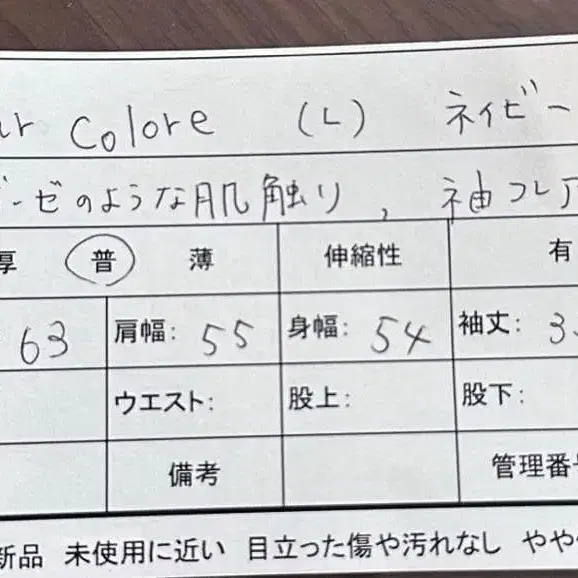 ur Colore (L) ネイビー
ーゼのような肌触り, 袖フレア
厚 普 薄 伸縮性 有
63 肩幅: 55 身幅: 54 袖丈: 3
ウエスト: 股上: 股下:
備考 管理番号
新品 未使用に近い 目立った傷や汚れなし やや